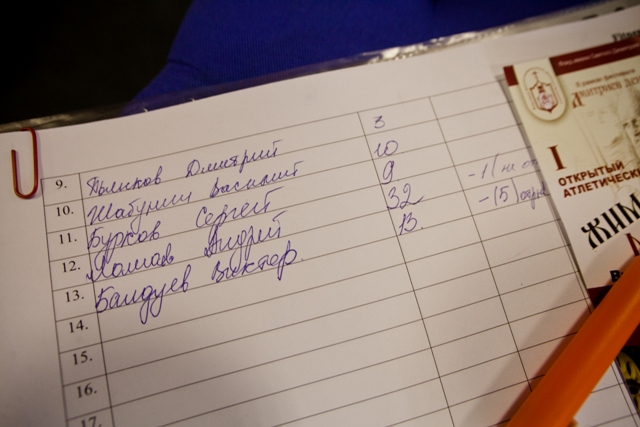 9. Пыжков Дмитрий 3
10. Шабунин Василий 10
11. Бурков Сергей 9
12. Андрей 32 -1 (не
13. Балдуев Виктор. 13. -(5)
14.
15.
16.
17.
Дмитриев
I
ОТКРЫТЫЙ
АТЛЕТИЧЕСКИЙ
ЖИМ